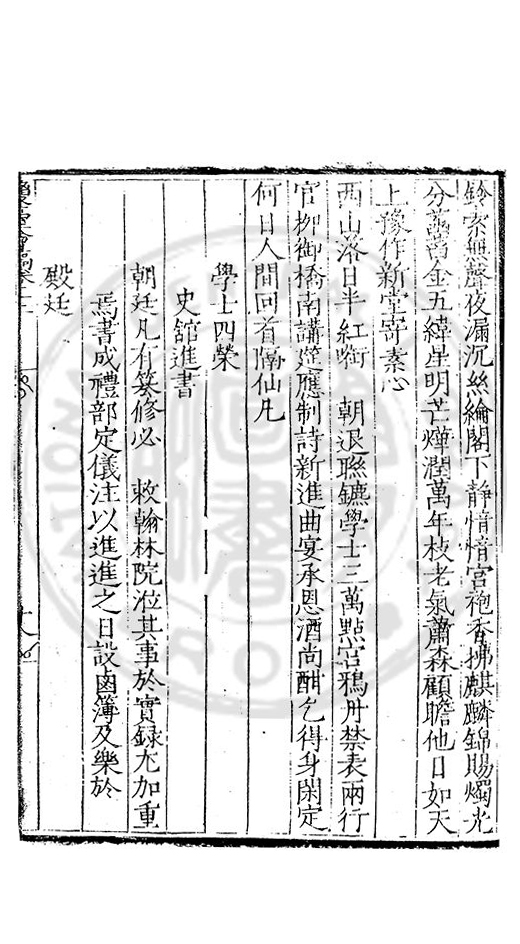 鈴索無聲夜漏沉絲綸閣下靜愔愔宫袍香拂麒麟錦賜燭光
分萬金五緯星明芒燁潤萬年枝老氣蕭森顧瞻他日如天
上豫作新堂寄素心
西山落日半紅啣 朝退聯鑣學士三萬點宫鴉丹禁表兩行
官栁御橋南講筵應制詩新進曲宴承恩酒尚酣乞得身閑定
何日人間回首隔仙凡
學士四榮
史舘進書
朝廷凡有纂修必 敕翰林院涖其事於實録尤加重
焉書成禮部定儀注以進進之日設鹵簿及樂於
殿廷